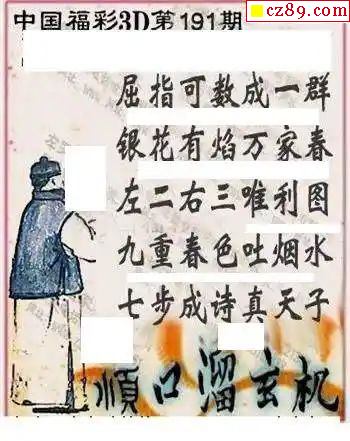 cz89.com
中国福彩3D第191期
屈指可数成一群
银花有焰万家春
左二右三唯利图
九重春色吐烟水
七步成诗真天子
顺口溜玄机